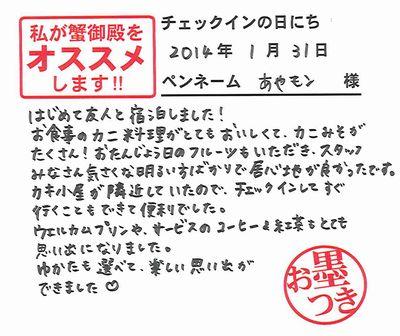 私が蟹御殿を
オススメ
します!!
チェックインの日にち
2014年 1月 31日
ペンネーム あやモン 様
はじめて友人と宿泊しました!
お食事のカニ料理がとてもおいしくて、カニみそが
たくさん!おたんじょう日のフルーツもいただき、スタッフ
みなさん気さくな明るい方ばかりで居心地が良かったです。
カキ小屋が隣近していたので、チェックインしてすぐ
行くこともできて便利でした。
ウェルカムプリンや、サービスのコーヒー&紅茶もとても
思い出になりました。
ゆかたも選べて、楽しい思い出が
できました♡
お墨つき